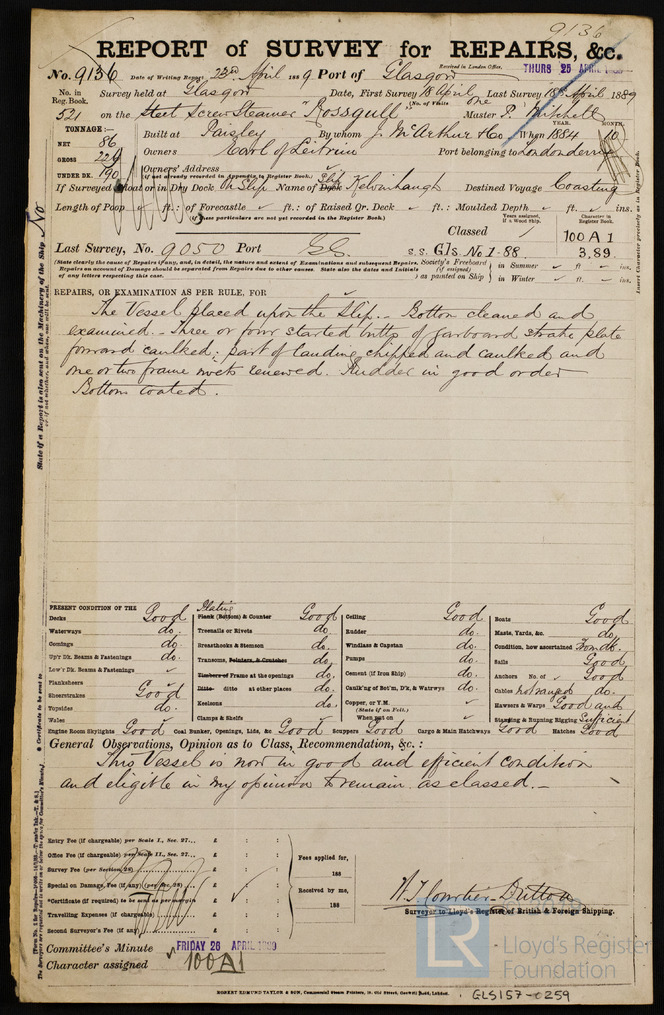 9136
REPORT of SURVEY for REPAIRS, &c.
Received in London Office, THURS 25 APRIL
No. 9136 Date of Writing Report 23rd April 1889 Port of Glasgow
No. in Reg. Book. Survey held at Glasgow Date, First Survey 18 April Last Survey 18th April 1889
(No. of Visits one
521 on the Steel Screw Steamer "Rossgull" Master P. Mitchell
TONNAGE:—
NET 86
GROSS 226
UNDER DK. 190
YEAR. MONTH.
Built at Paisley By whom J. McArthur & Co When 1884 10
Owners Earl of Leitrim Port belonging to Londonderry
Owners' Address
(If not already recorded in Appendix to Register Book.)
If Surveyed Afloat or in Dry Dock On Slip Name of Dock Slip Kelvinhaugh Destined Voyage Coasting
Length of Poop ft.: of Forecastle ft.: of Raised Qr. Deck ft.: Moulded Depth ft. ins.
(If these particulars are not yet recorded in the Register Book.)
Years assigned, if a Wood Ship. Character in Register Book.
Classed 100 A 1
Last Survey, No. 9050 Port s.s. Gls No 1.88 3.89
(State clearly the cause of Repairs if any, and, in detail, the nature and extent of Examinations and subsequent Repairs.
Repairs on account of Damage should be separated from Repairs due to other causes. State also the dates and Initials
of any letters respecting this case.
Society's Freeboard (if assigned) as painted on Ship in Summer ft ins.
in Winter ft. ins.
REPAIRS, OR EXAMINATION AS PER RULE, FOR
The Vessel placed upon the Slip. - Bottom cleaned and
examined. - Three or four started butts of garboard strake plate
forward caulked; part of landing chipped and caulked and
one or two frame rivets renewed. Rudder in good order
Bottom coated.
PRESENT CONDITION OF THE
Decks Good
Waterways do.
Comings do.
Up'r Dk. Beams & Fastenings do.
Low'r Dk. Beams & Fastenings
Planksheers
Sheerstrakes Good
Topsides do.
Wales
Plating
Plank (Bottom) & Counter Good
Treenails or Rivets do.
Breasthooks & Stemson do.
Transoms, Pointers, & Crutches do.
Timbers of Frame at the openings do.
Ditto ditto at other places do.
Keelsons do.
Clamps & Shelfs
Ceiling Good
Rudder do.
Windlass & Capstan do.
Pumps do.
Cement (if Iron Ship) do.
Caulk'ng of Bot'm, D'k, & Watrwys do.
Copper, or Y.M.
(State if on Felt.)
When put on
Boats Good
Masts, Yards, &c. do.
Condition, how ascertained From dk.
Sails Good
Anchors No. of Good
Cables not ranged do.
Hawsers & Warps Good and
Standing & Running Rigging Sufficient
Engine Room Skylights Good Coal Bunker, Openings, Lids, &c Good Scuppers Good Cargo & Main Hatchways Good Hatches Good
General Observations, Opinion as to Class, Recommendation, &c.:
This Vessel is now in good and efficient condition
and eligible in my opinion to remain as classed. -
Entry Fee (if chargeable) per Scale I., Sec. 27... £ : :
Office Fee (if chargeable) per Scale II., Sec. 27... £ : :
Survey Fee (per Section 28) £ : :
Special on Damage Fee (if any) (per Sec. 28) £ : :
*Certificate (if required) to be sent as per margin £ : :
Travelling Expenses (if chargeable) £ : :
Second Surveyor's Fee (if any) £ : :
Fees applied for,
188
Received by me,
188
W. J. Courtier-Dutton
Surveyor to Lloyd's Register of British & Foreign Shipping.
Committee's Minute FRIDAY 26 APRIL 1889
Character assigned 100A1
LR Lloyd's Register Foundation
ROBERT EDMUND TAYLOR & SON, Commercial Steam Printers, 19, Old Street, Goswell Road, London.
GLS157-0259
State if a Report is also sent on the Machinery of the Ship No
or if not whether, and when, one will be sent.
Insert Character precisely as in Register Book.